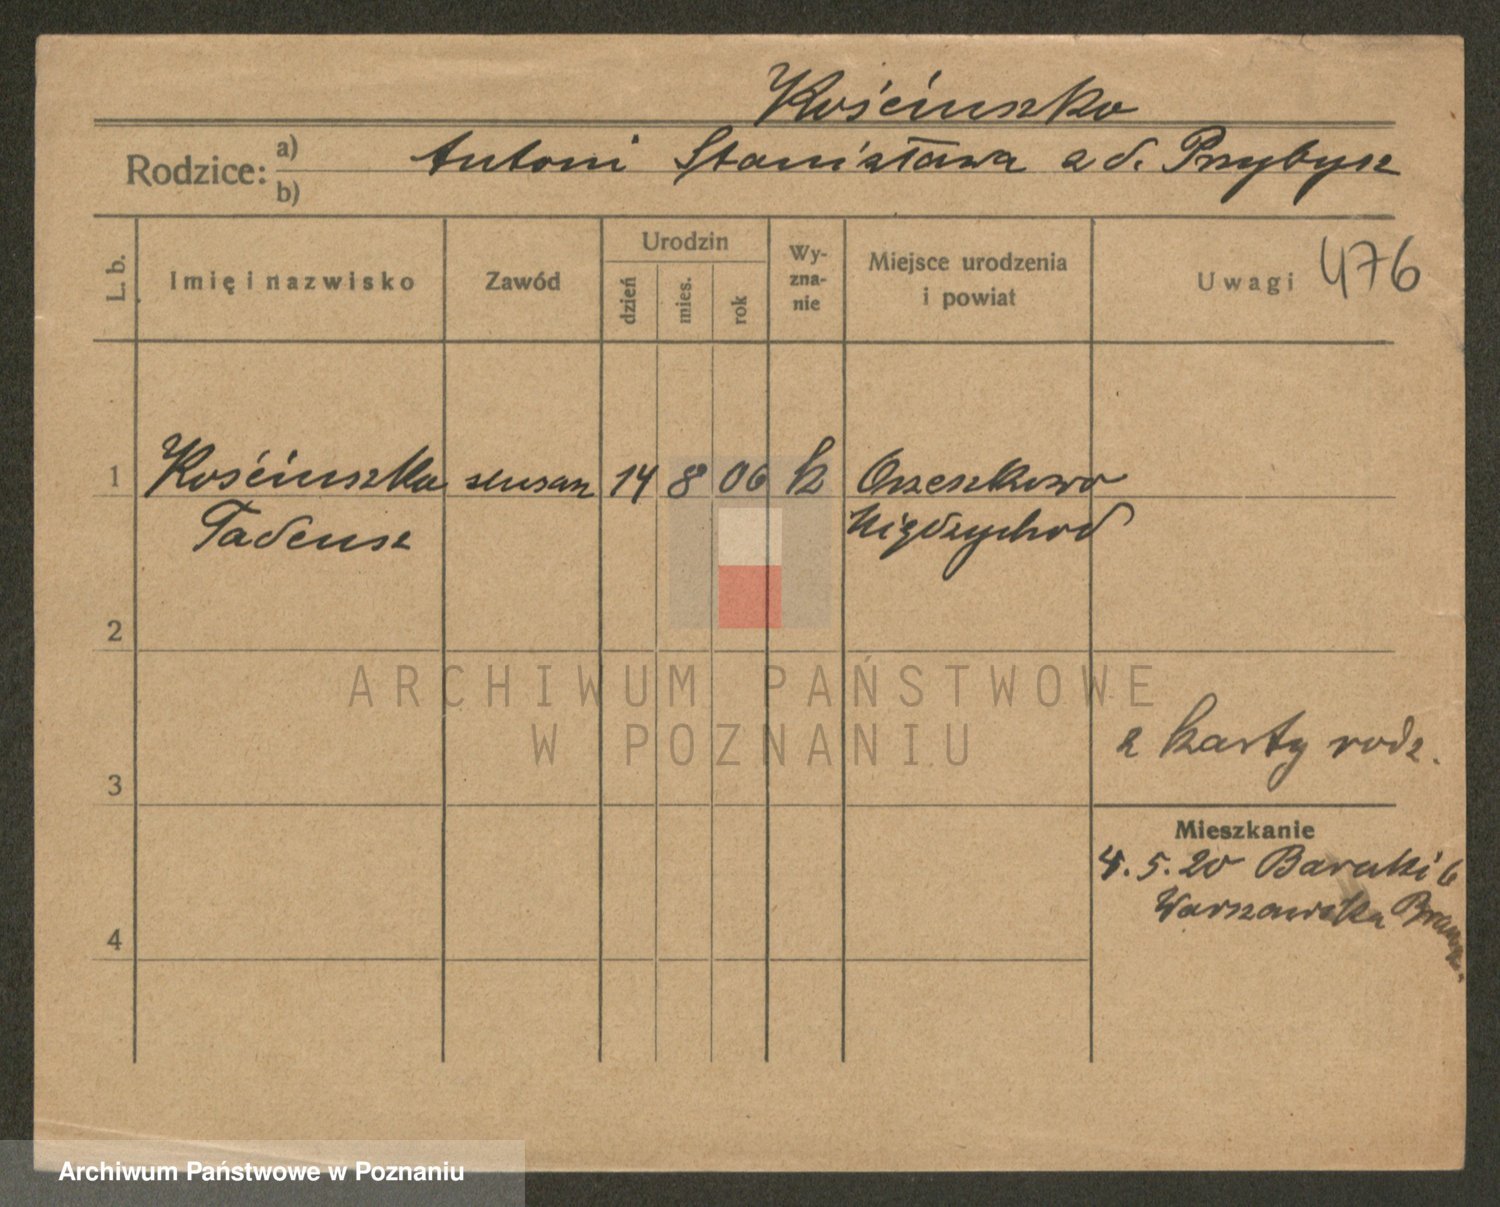 Kościuszko
Rodzice: a) b)
Antoni Stanisława z d. Przybysz
L. b.
Imię i nazwisko
Zawód
Urodzin
dzień
mies.
rok
Wy-
zna-
nie
Miejsce urodzenia
i powiat
Uwagi
476
1
Kościuszko ślusarz 14 8 06 k Orzeszkowo
Tadeusz
Międzychód
2
ARCHIWUM PAŃSTWOWE
W POZNANIU
z karty rodz.
3
Mieszkanie
4.5.20 Baraki 6
Warszawska
4
Archiwum Państwowe w Poznaniu